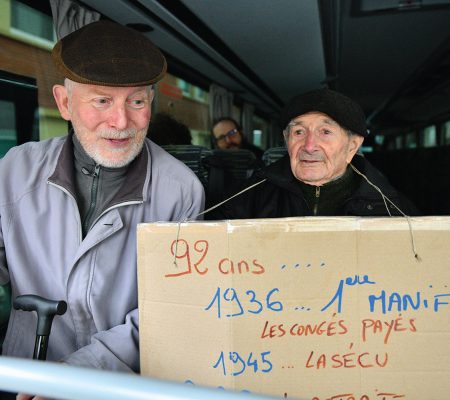 92 ans ....
1936 ... 1ère MANIF
LES CONGÉS PAYÉS
1945 ... LA SÉCU